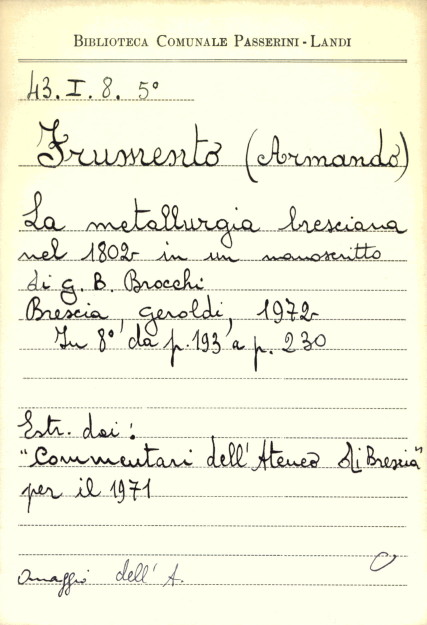 BIBLIOTECA COMUNALE PASSERINI - LANDI
43. I. 8. 5°
Frumento (Armando)
La metallurgia bresciana
nel 1802 in un manoscritto
di G. B. Brocchi
Brescia, Geroldi, 1972
In 8° da p. 193 a p. 230
Estr. dai:
"Commentari dell'Ateneo di Brescia"
per il 1971
omaggio dell'A.